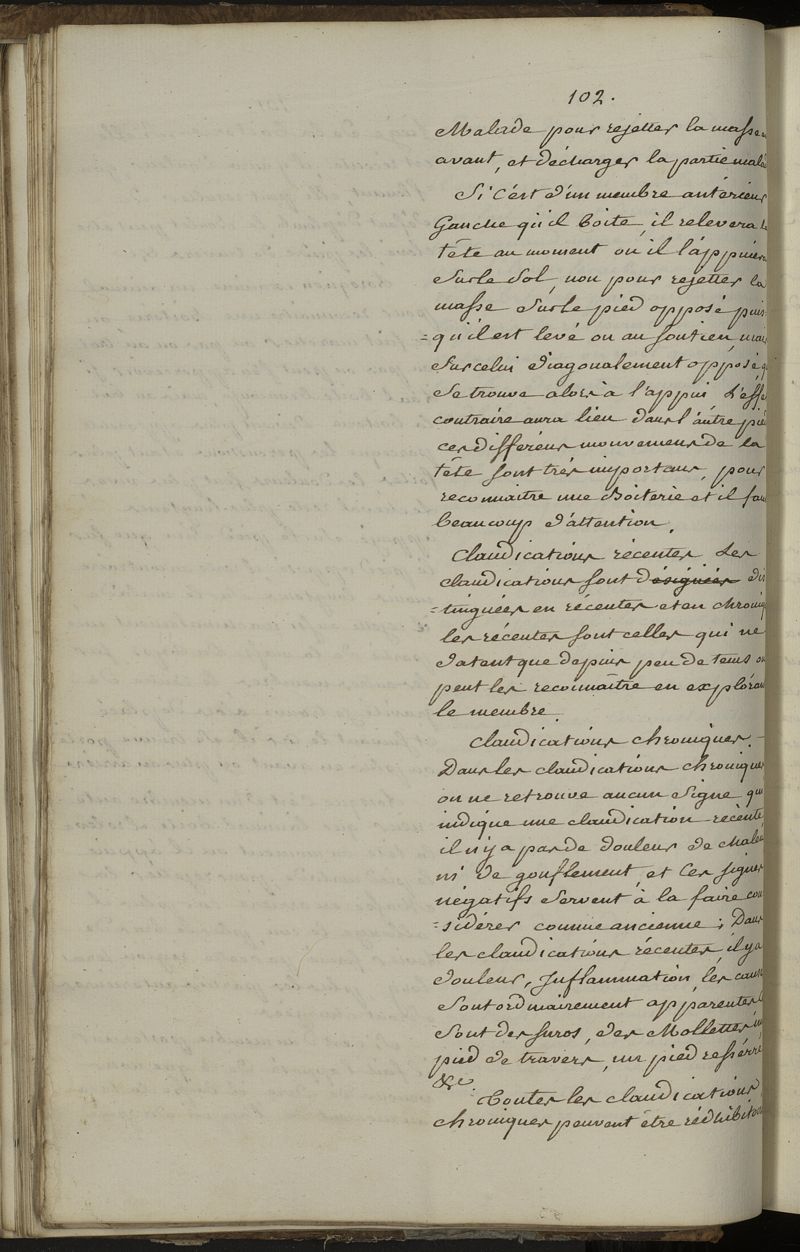 102.
Malade pour rejetter la masse
avant, et décharger la partie mala
Si c'ést d'un membre antérieur
Gauche qu'il boite, il relevera l
tête au moment ou il l'áppuiera
sur le sol, non pour rejetter la
masse sur le pied opposé puis
=qu'il est levé ou au soutien, mai
sur celui diagonalement oppósé, q
se trouve alors à l'appui, L'effe
contraire aura lieu dans l'áutre pié
ces differens mouvemens de la
tête sont trés importans, pour
reconnaitre une Boiterie et il fau
beaucoup d'attention.
Claudications récentes. Les
claudications sont désignées dis
=tinguées en récentes et en chroniq
les récentes sont celles qui ne
datent que depuis peu de tems on
peut les reconnaître en explóran
le membre.
Claudications chroniques.-
Dans les claudications chroniques
on ne retrouve aucun signe qui
indique une claudication récente,
il n'y a pas de douleur de chaleu
ni de gonflement, et ces signes
négatifs servent à la faire con
=sidérer comme ancienne; Dans
les claudications récentes, il y a
douleur, Inflammation, les caus
sont ordinairement apparentes,
sont des suros, des Mollettes, un
pied de travers, un pied resserré
&c.
Toutes les claudications
chroniques peuvent être rédhibitoi